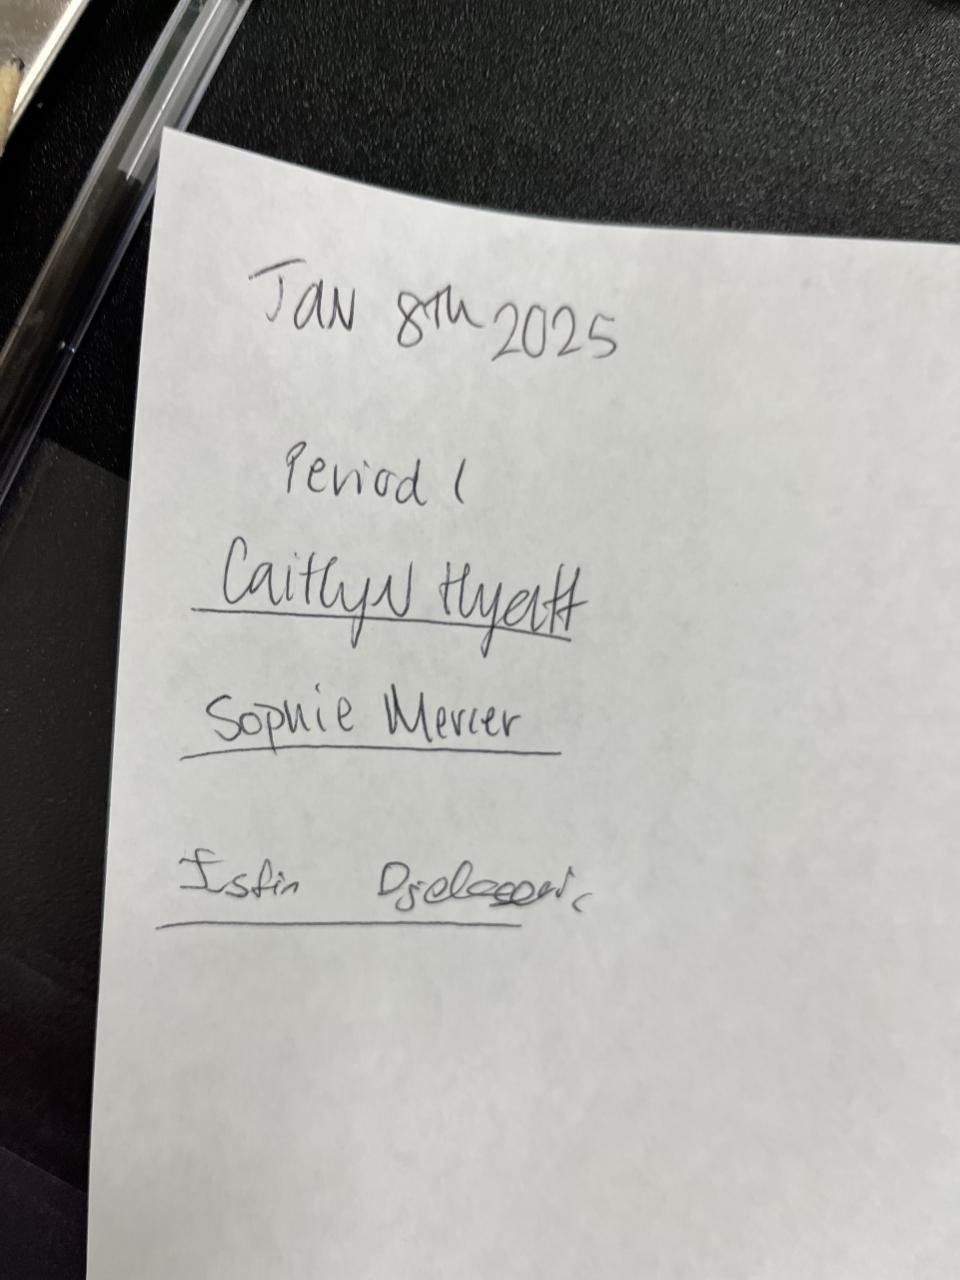 Jan 8th 2025
Period 1
Caitlyn Hyatt
Sophie Mercer